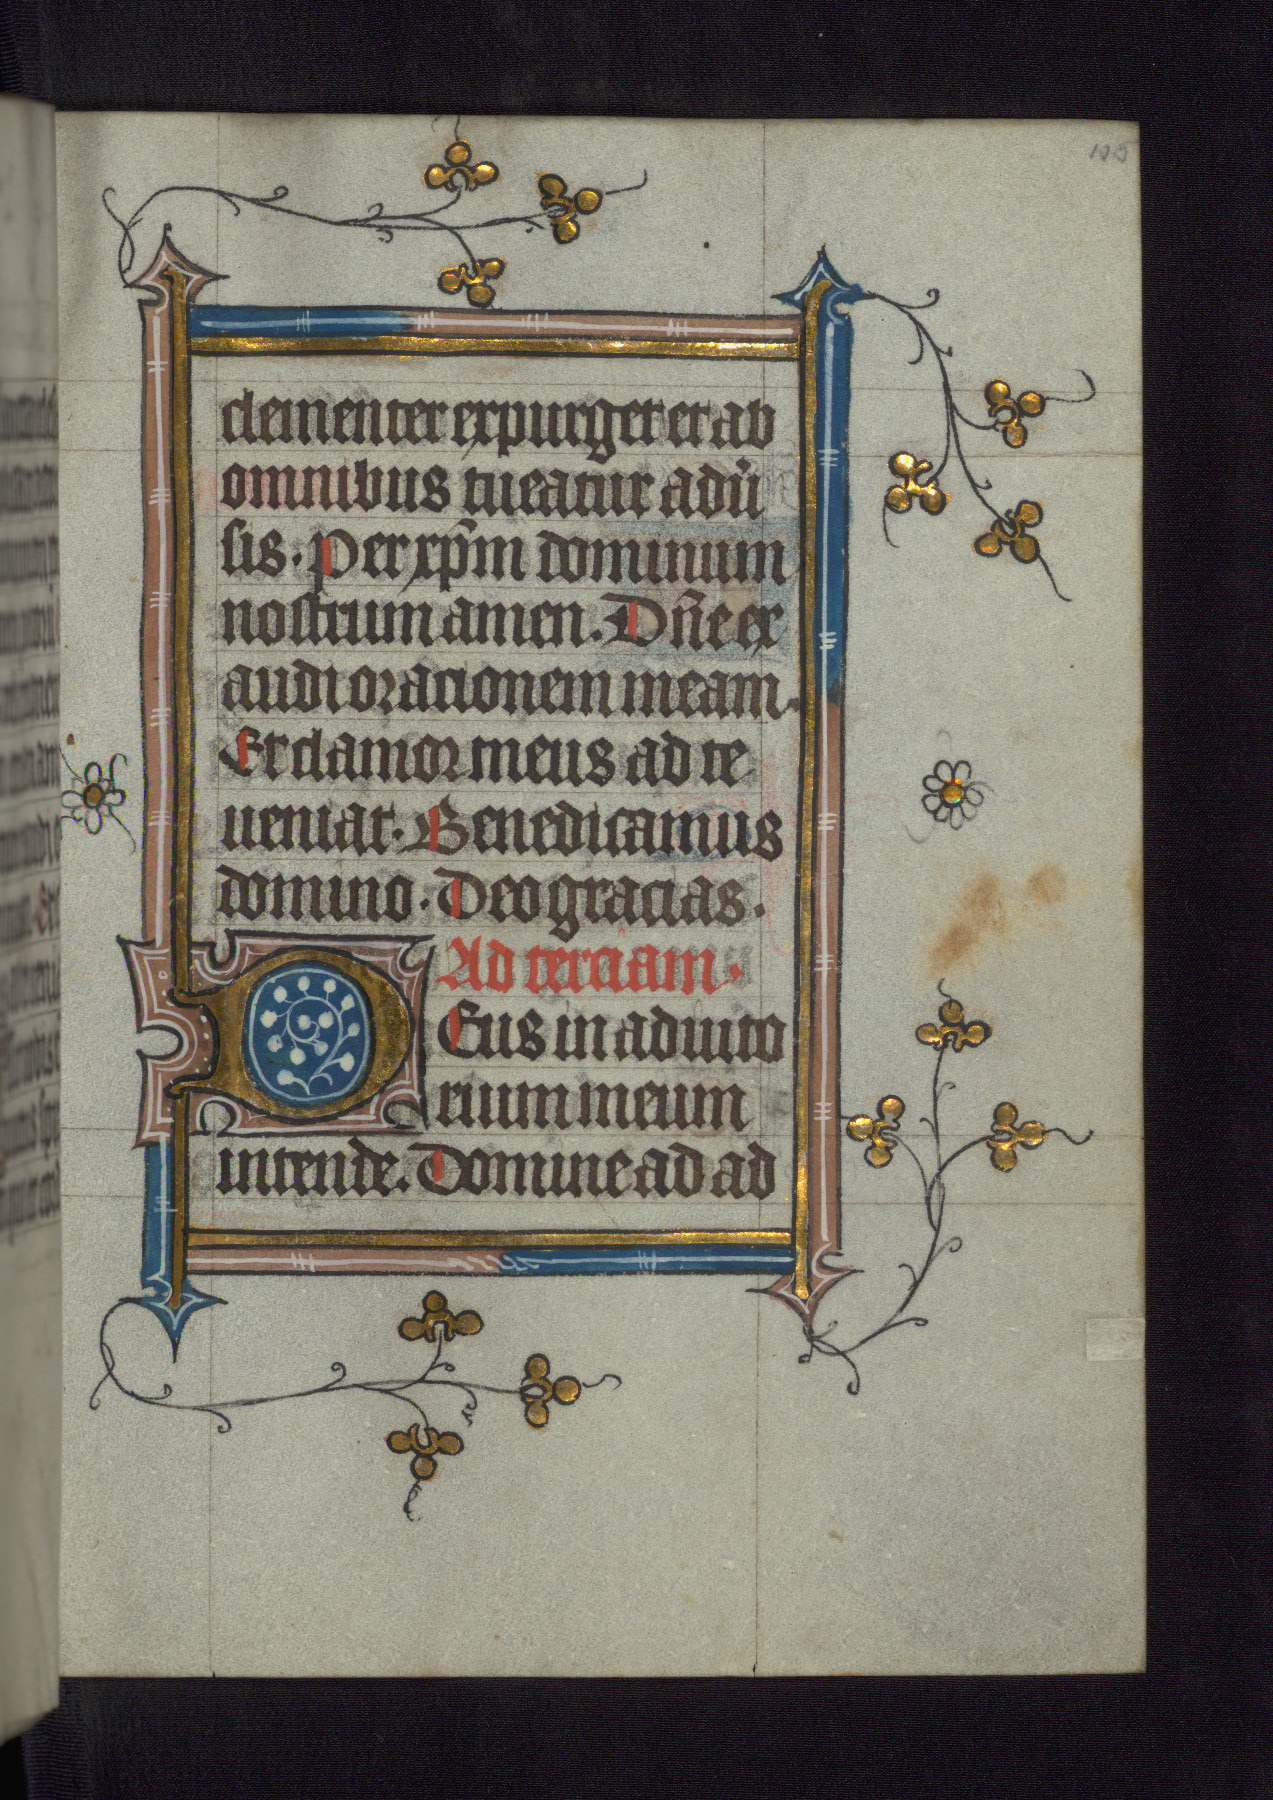 clementer expurget et ab
omnibus tueatur adũ
sis. Per xp̃m dominum
nostrum amen. Dñe ex
audi orationem meam.
Et clamor meus ad te
ueniat. Benedicamus
domino. Deo gracias.
Ad terciam.
DEus in adiuto
rium meum
intende. Domine ad ad